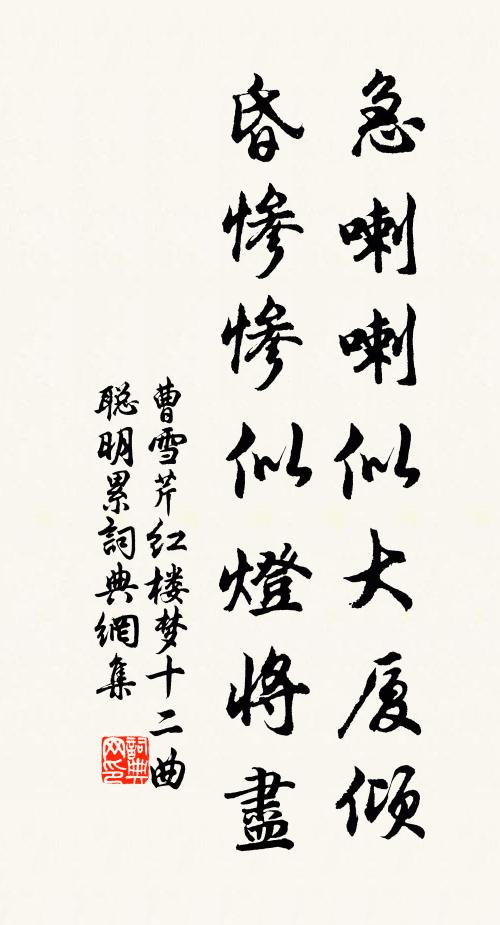 急喇喇似大厦倾
昏惨惨似燈将盡
曹雪芹红楼梦十二曲
聪明累詞典網集
詞典网印